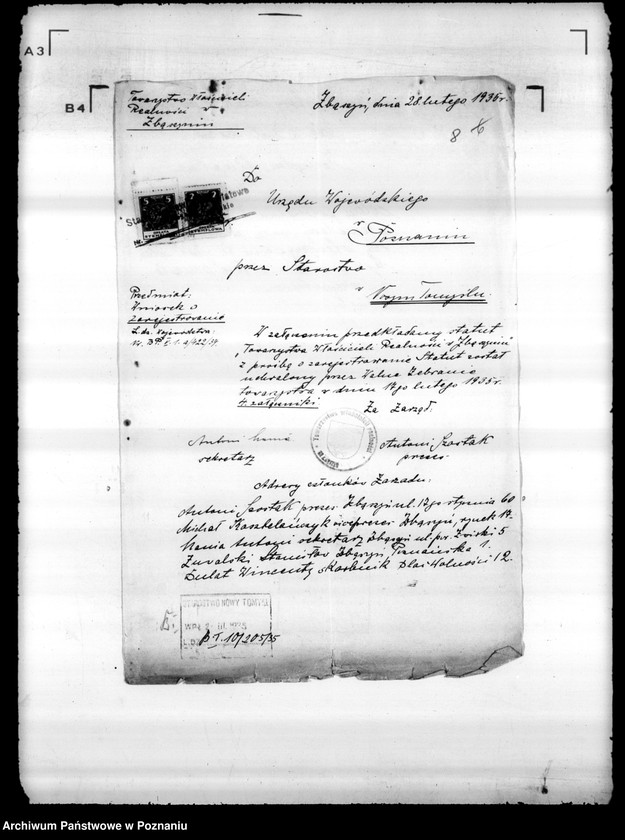 A3
B4
Towarzystwo Właścicieli
Realności
Zbąszynin
Zbąszyń, dnia 28 lutego 1935 r.
8
Do
Urzędu Wojewódzkiego
w
Poznaniu
przez Starostwo
w
Nowym Tomyślu.
Przedmiot:
Wniosek o
zarejestrowanie
L. dz. Województwa:
W załączeniu przedkładamy statut
"Towarzystwa Właścicieli Realności w Zbąszyniu"
z prośbą o zarejestrowanie. Statut został
uchwalony przez Walne Zebranie
towarzystwa w dniu 17go lutego 1935 r.
4. załączniki
Za Zarząd:
Antoni
sekretarz
Antoni Szostak
prezes
Adresy członków Zarządu:
Antoni Szostak prezes Zbąszyń ul. 17go stycznia 60
Michał Kasztelańczyk wiceprezes Zbąszyń, rynek 17.
Mania Antoni sekretarz Zbąszyń ul. 5
Stanisław Zbąszyń, 1.
Dulat Wincenty skarbnik Plac Wolności 12.
STAROSTWO NOWY TOMYŚL
10/205/35
Archiwum Państwowe w Poznaniu